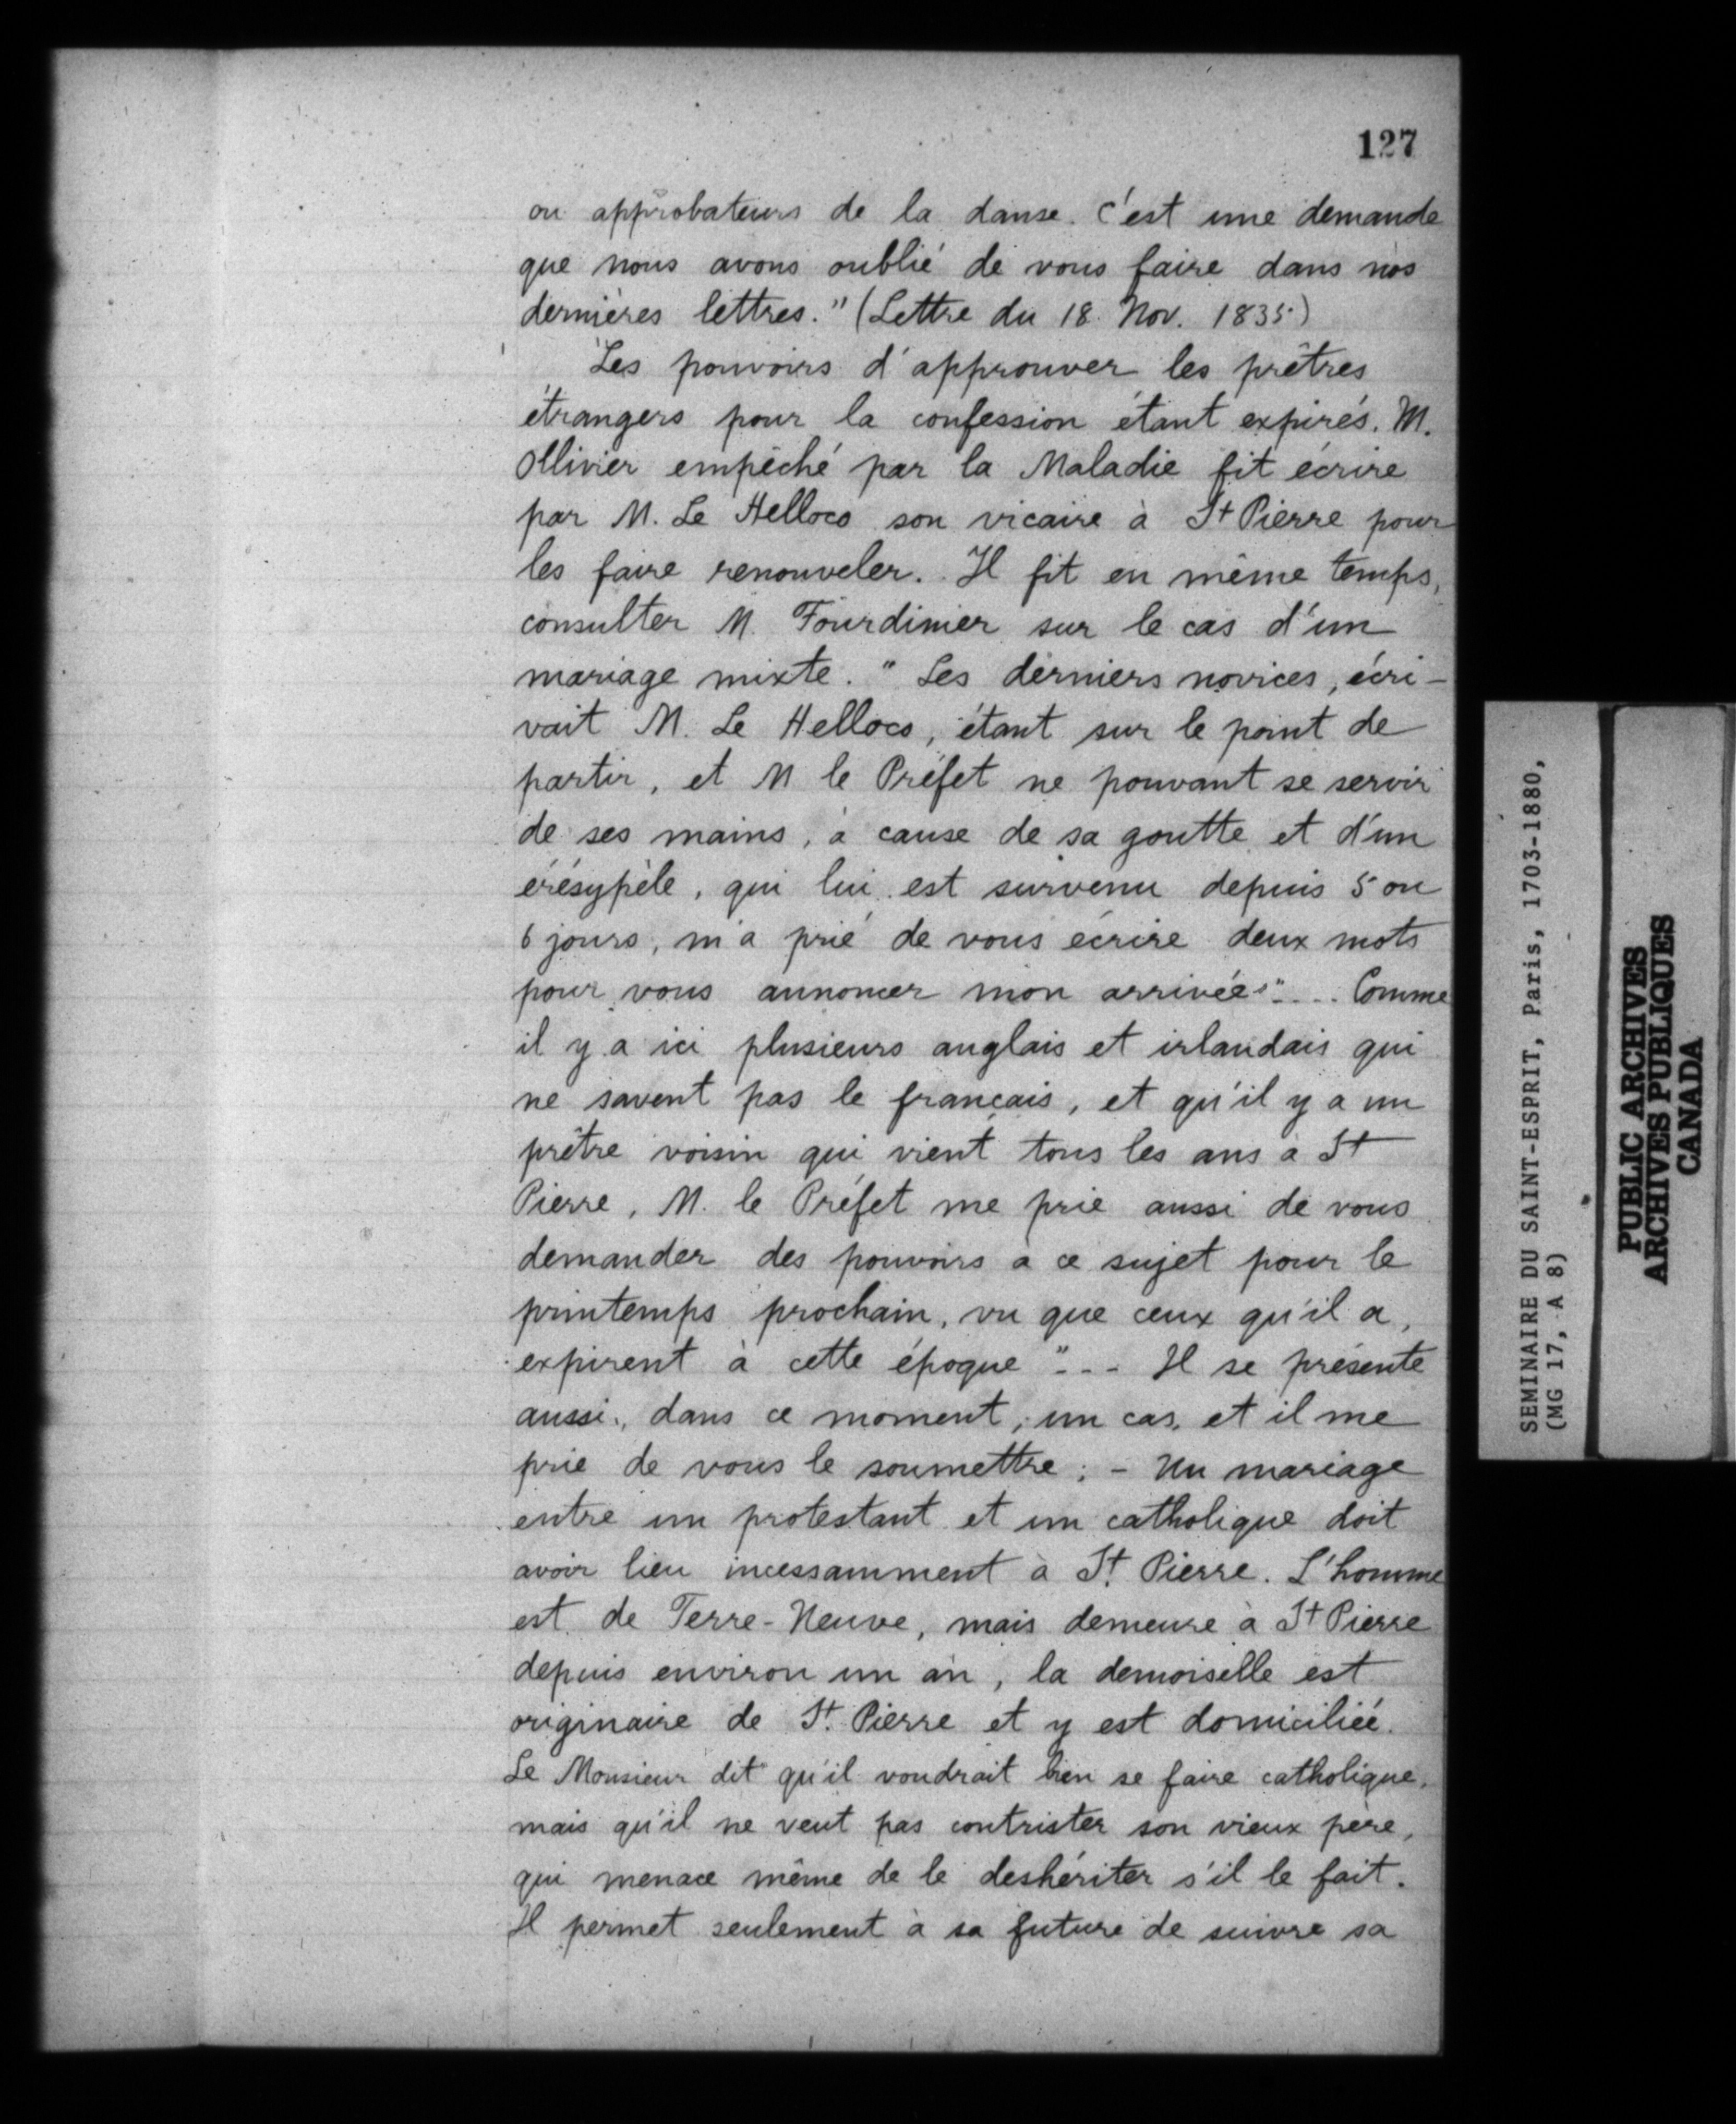 127
ou approbateurs de la danse. C'est une demande
que nous avons oublié de vous faire dans nos
dernières lettres." (Lettre du 18 Nov. 1835)
Les pouvoirs d'approuver les prêtres
étrangers pour la confession étant expirés. M.
Ollivier empêché par la Maladie fit écrire
par M. Le Helloco son vicaire à St Pierre pour
les faire renouveler. Il fit en même temps,
consulter M. Fourdinier sur le cas d'un
mariage mixte. "Les derniers novices, écri-
vait M. Le Helloco, étant sur le point de
partir, et M le Préfet ne pouvant se servir
de ses mains, à cause de sa goutte et d'un
érésypèle, qui lui est survenu depuis 5 ou
6 jours, m'a prié de vous écrire deux mots
pour vous annoncer mon arrivée".... Comme
il y a ici plusieurs anglais et irlandais qui
ne savent pas le français, et qu'il y a un
prêtre voisin qui vient tous les ans à St
Pierre, M. le Préfet me prie aussi de vous
demander des pouvoirs à ce sujet pour le
printemps prochain, vu que ceux qu'il a,
expirent à cette époque "... Il se présente
aussi, dans ce moment, un cas, et il me
prie de vous le soumettre: - Un mariage
entre un protestant et un catholique doit
avoir lieu incessamment à St. Pierre. L'homme
est de Terre-Neuve, mais demeure à St Pierre
depuis environ un an, la demoiselle est
originaire de St. Pierre et y est domiciliée.
Le Monsieur dit qu'il voudrait bien se faire catholique,
mais qu'il ne veut pas contrister son vieux père,
qui menace même de le deshériter s'il le fait.
Il permet seulement à sa future de suivre sa
SEMINAIRE DU SAINT-ESPRIT, Paris, 1703-1880,
(MG 17, A 8)
PUBLIC ARCHIVES
ARCHIVES PUBLIQUES
CANADA